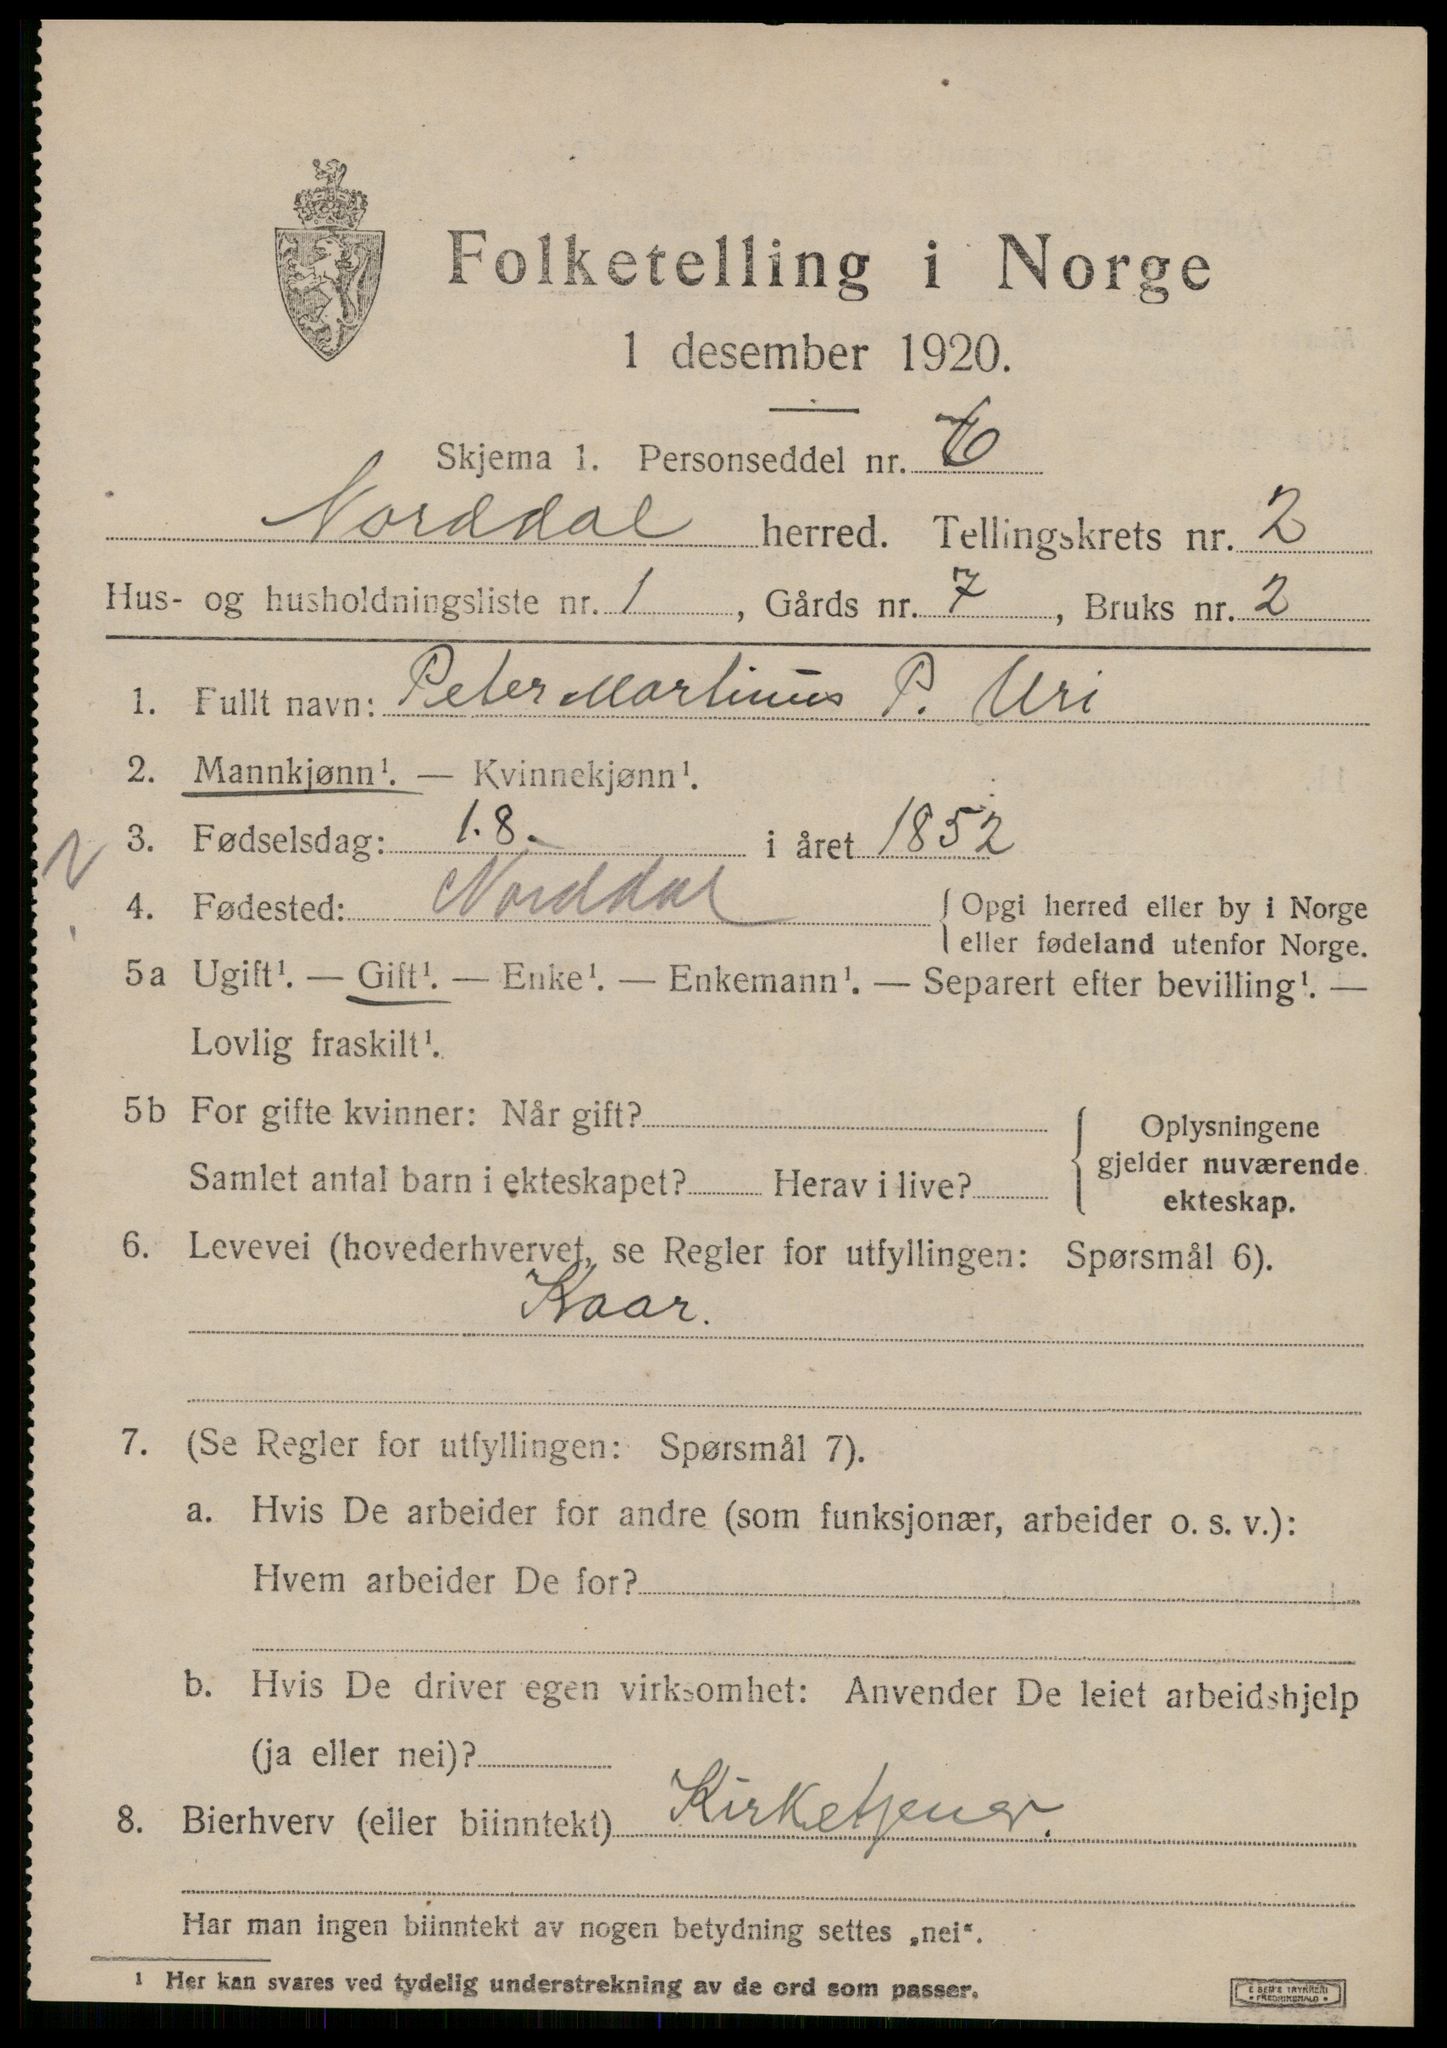 Folketelling i Norge
1 desember 1920.
Skjema 1. Personseddel nr.
Norddal herred. Tellingskrets nr. 2
Hus- og husholdningsliste nr. 1, Gårds nr. 7, Bruks nr. 2
1. Fullt navn: Peter Martinus P. Uri
2. Mannkjønn¹. — Kvinnekjønn¹.
3. Fødselsdag: 1.8. i året 1852
4. Fødested: Norddal { Opgi herred eller by i Norge
eller fødeland utenfor Norge.
5a Ugift¹. — Gift¹. — Enke¹. — Enkemann¹. — Separert efter bevilling¹. —
Lovlig fraskilt¹.
5b For gifte kvinner: Når gift? { Oplysningene
gjelder nuværende
Samlet antal barn i ekteskapet? Herav i live?
ekteskap.
6. Levevei (hovederhvervet, se Regler for utfyllingen: Spørsmål 6).
Kaar.
7. (Se Regler for utfyllingen: Spørsmål 7).
a. Hvis De arbeider for andre (som funksjonær, arbeider o. s. v.):
Hvem arbeider De for?
b. Hvis De driver egen virksomhet: Anvender De leiet arbeidshjelp
(ja eller nei)?
8. Bierhverv (eller biinntekt) Kirketjener.
Har man ingen biinntekt av nogen betydning settes „nei“.
¹ Her kan svares ved tydelig understrekning av de ord som passer.